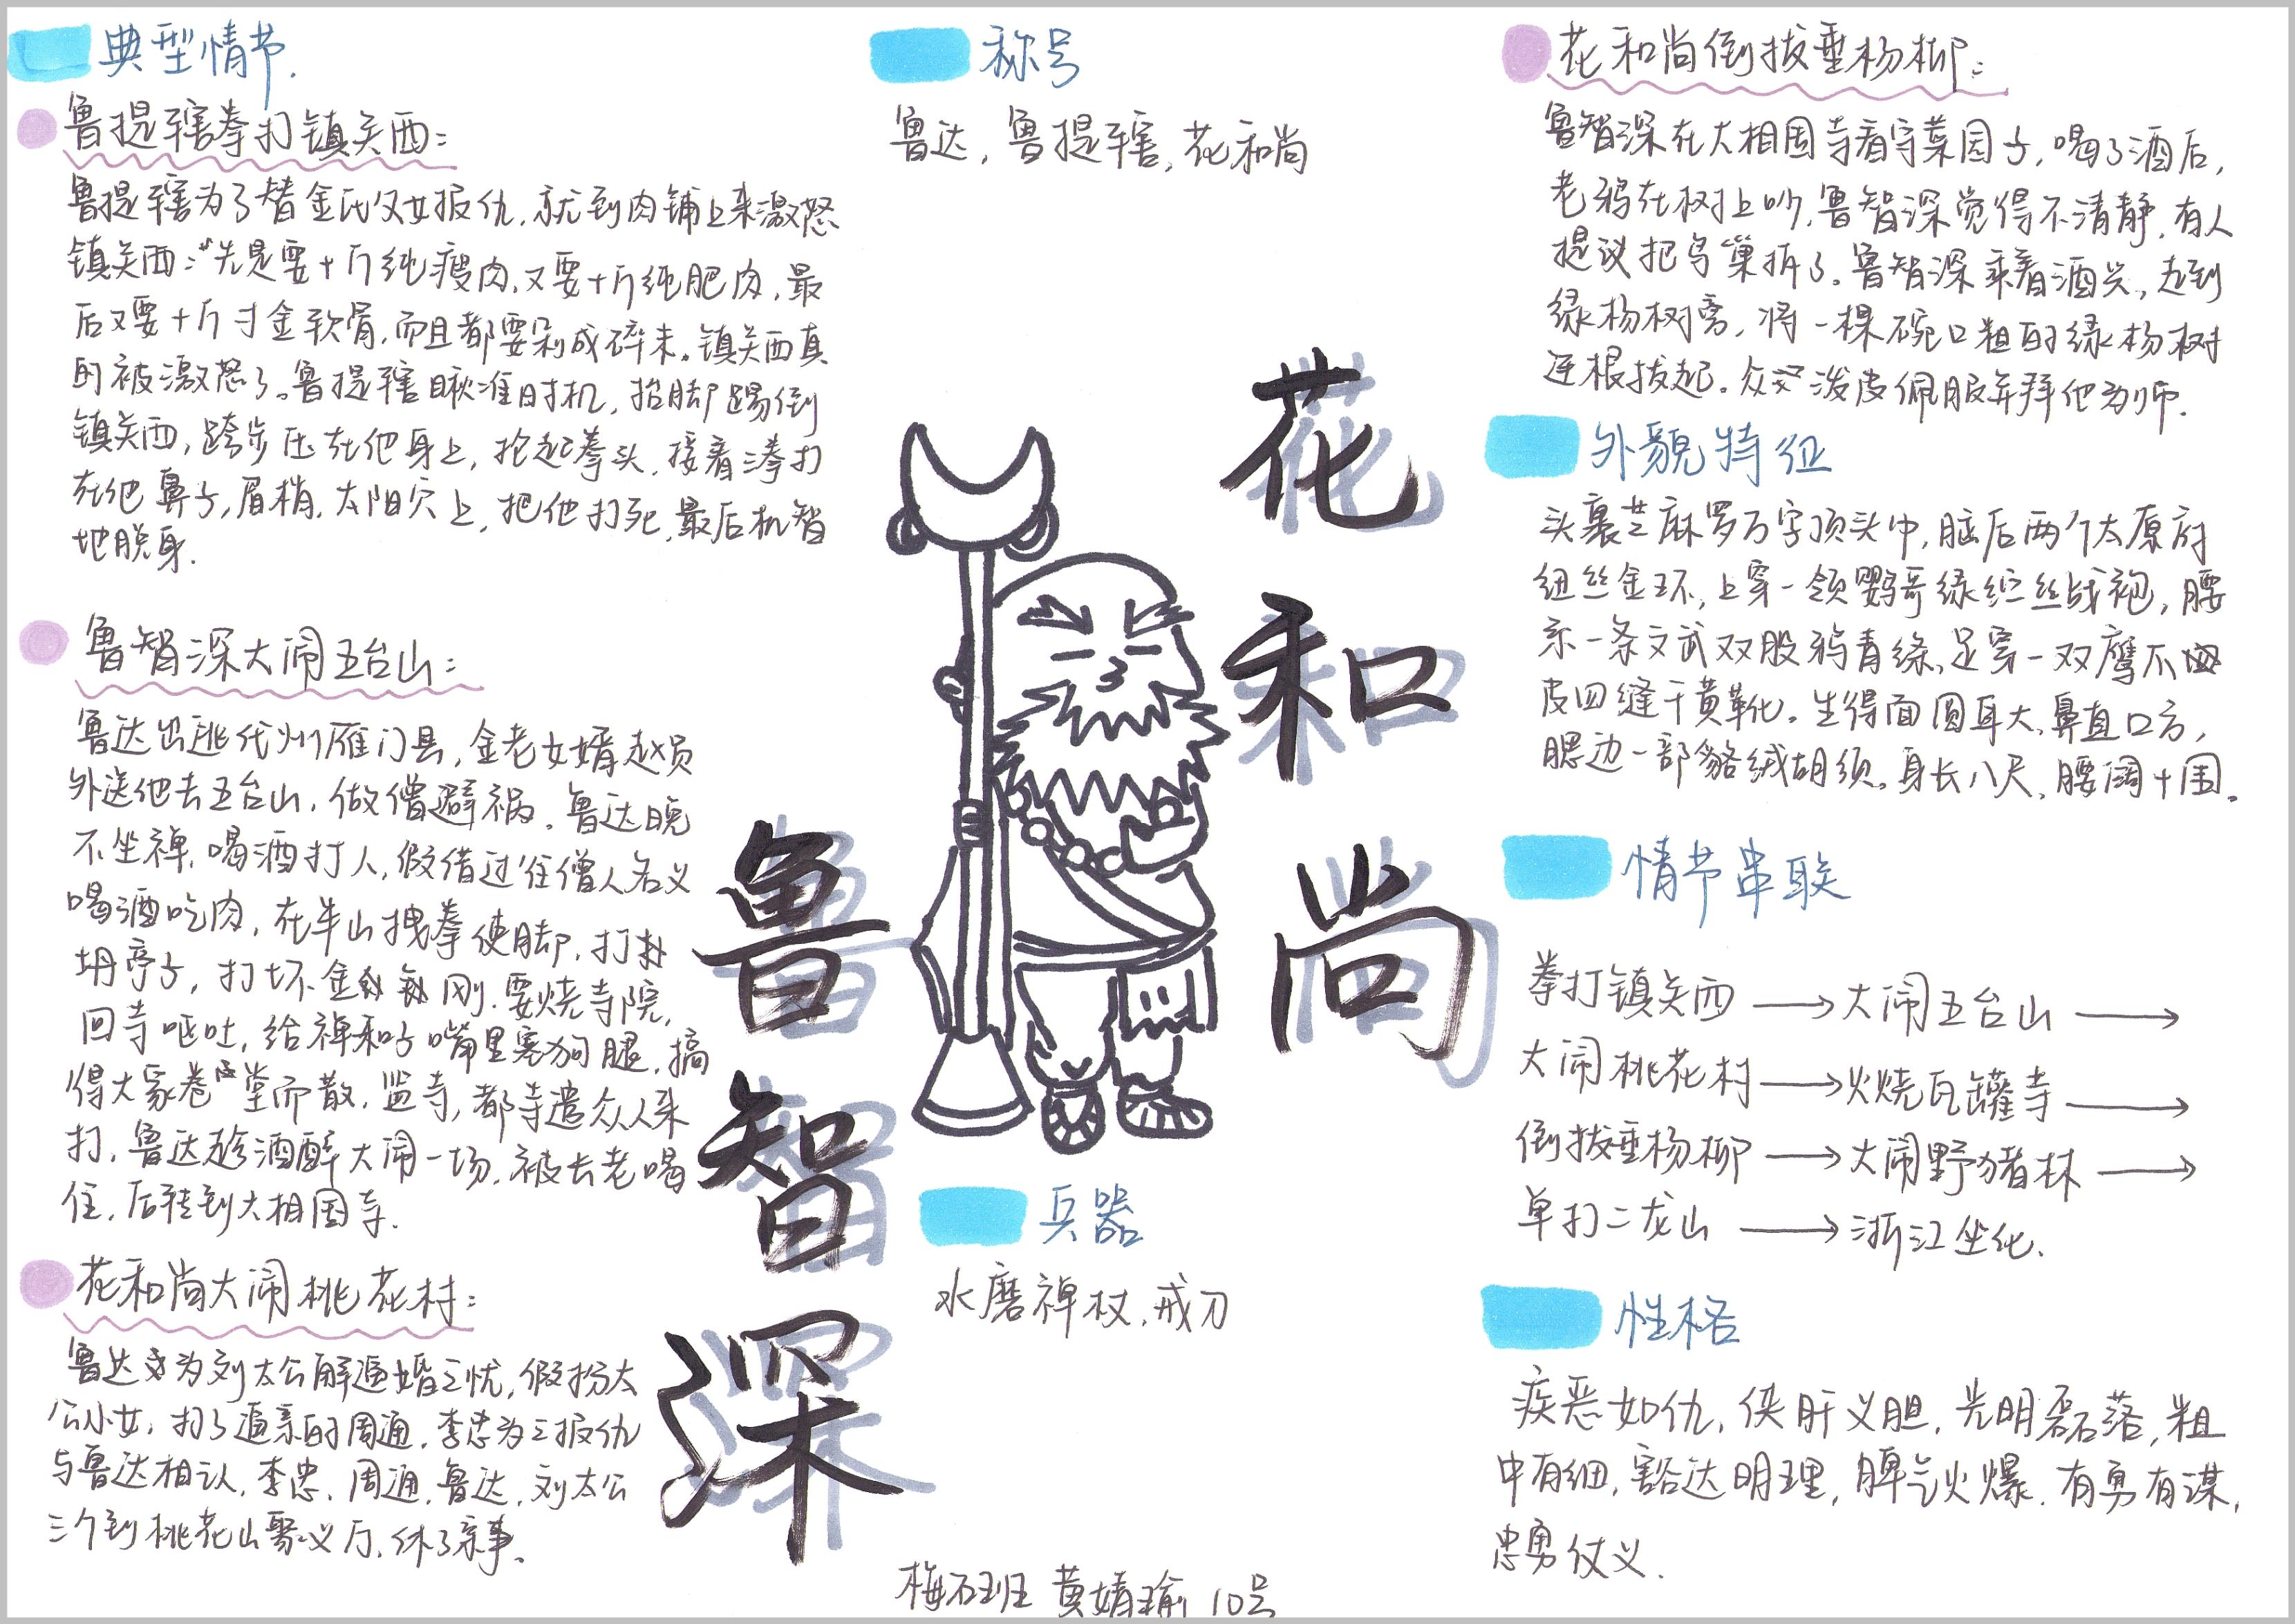 典型情节.
鲁提辖拳打镇关西:
鲁提辖为了替金氏父女报仇,就到肉铺上来激怒
镇关西:“先是要十斤纯瘦肉,又要十斤纯肥肉,最
后又要十斤寸金软骨,而且都要剁成碎末。镇关西真
的被激怒了。鲁提辖瞅准时机,抬脚踢倒
镇关西,跨步压在他身上,抡起拳头,接着三拳打
在他鼻子,眉梢,太阳穴上,把他打死,最后机智
地脱身.
鲁智深大闹五台山:
鲁达出逃代州雁门县,金老女婿赵员
外送他去五台山,做僧避祸。鲁达晚
不坐禅,喝酒打人,假借过往僧人名义
喝酒吃肉,在半山拽拳使脚,打扑
坍亭子,打坏金刚.要烧寺院,
回寺呕吐,给禅和子嘴里塞狗腿,搞
得大家卷堂而散,监寺,都寺遣众人来
打,鲁达趁酒醉大闹一场,被长老喝
住,后转到大相国寺.
花和尚大闹桃花村:
鲁达为刘太公解逼婚之忧,假扮太
公小女,打了逼亲的周通,李忠为之报仇
与鲁达相认,李忠、周通,鲁达,刘太公
三个到桃花山聚义厅,休了亲事。
称号
鲁达,鲁提辖,花和尚
花和尚
鲁智深
兵器
水磨禅杖,戒刀
梅石班 黄婧瑜 10号
花和尚倒拔垂杨柳:
鲁智深在大相国寺看守菜园子,喝了酒后,
老鸦在树上吵,鲁智深觉得不清静,有人
提议把鸟巢拆了。鲁智深乘着酒兴,走到
绿杨树旁,将一棵碗口粗的绿杨树
连根拔起。众泼皮佩服并拜他为师.
外貌特征
头裹芝麻罗万字顶头巾,脑后两个太原府
纽丝金环,上穿一领鹦哥绿纻丝战袍,腰
系一条文武双股鸦青绦,足穿一双鹰爪
皮四缝干黄靴。生得面圆耳大,鼻直口方,
腮边一部貉绒胡须。身长八尺、腰阔十围。
情节串联
拳打镇关西 → 大闹五台山 →
大闹桃花村 → 火烧瓦罐寺 →
倒拔垂杨柳 → 大闹野猪林 →
单打二龙山 → 浙江坐化.
性格
疾恶如仇,侠肝义胆,光明磊落,粗
中有细,豁达明理,脾气火爆,有勇有谋,
忠勇仗义.